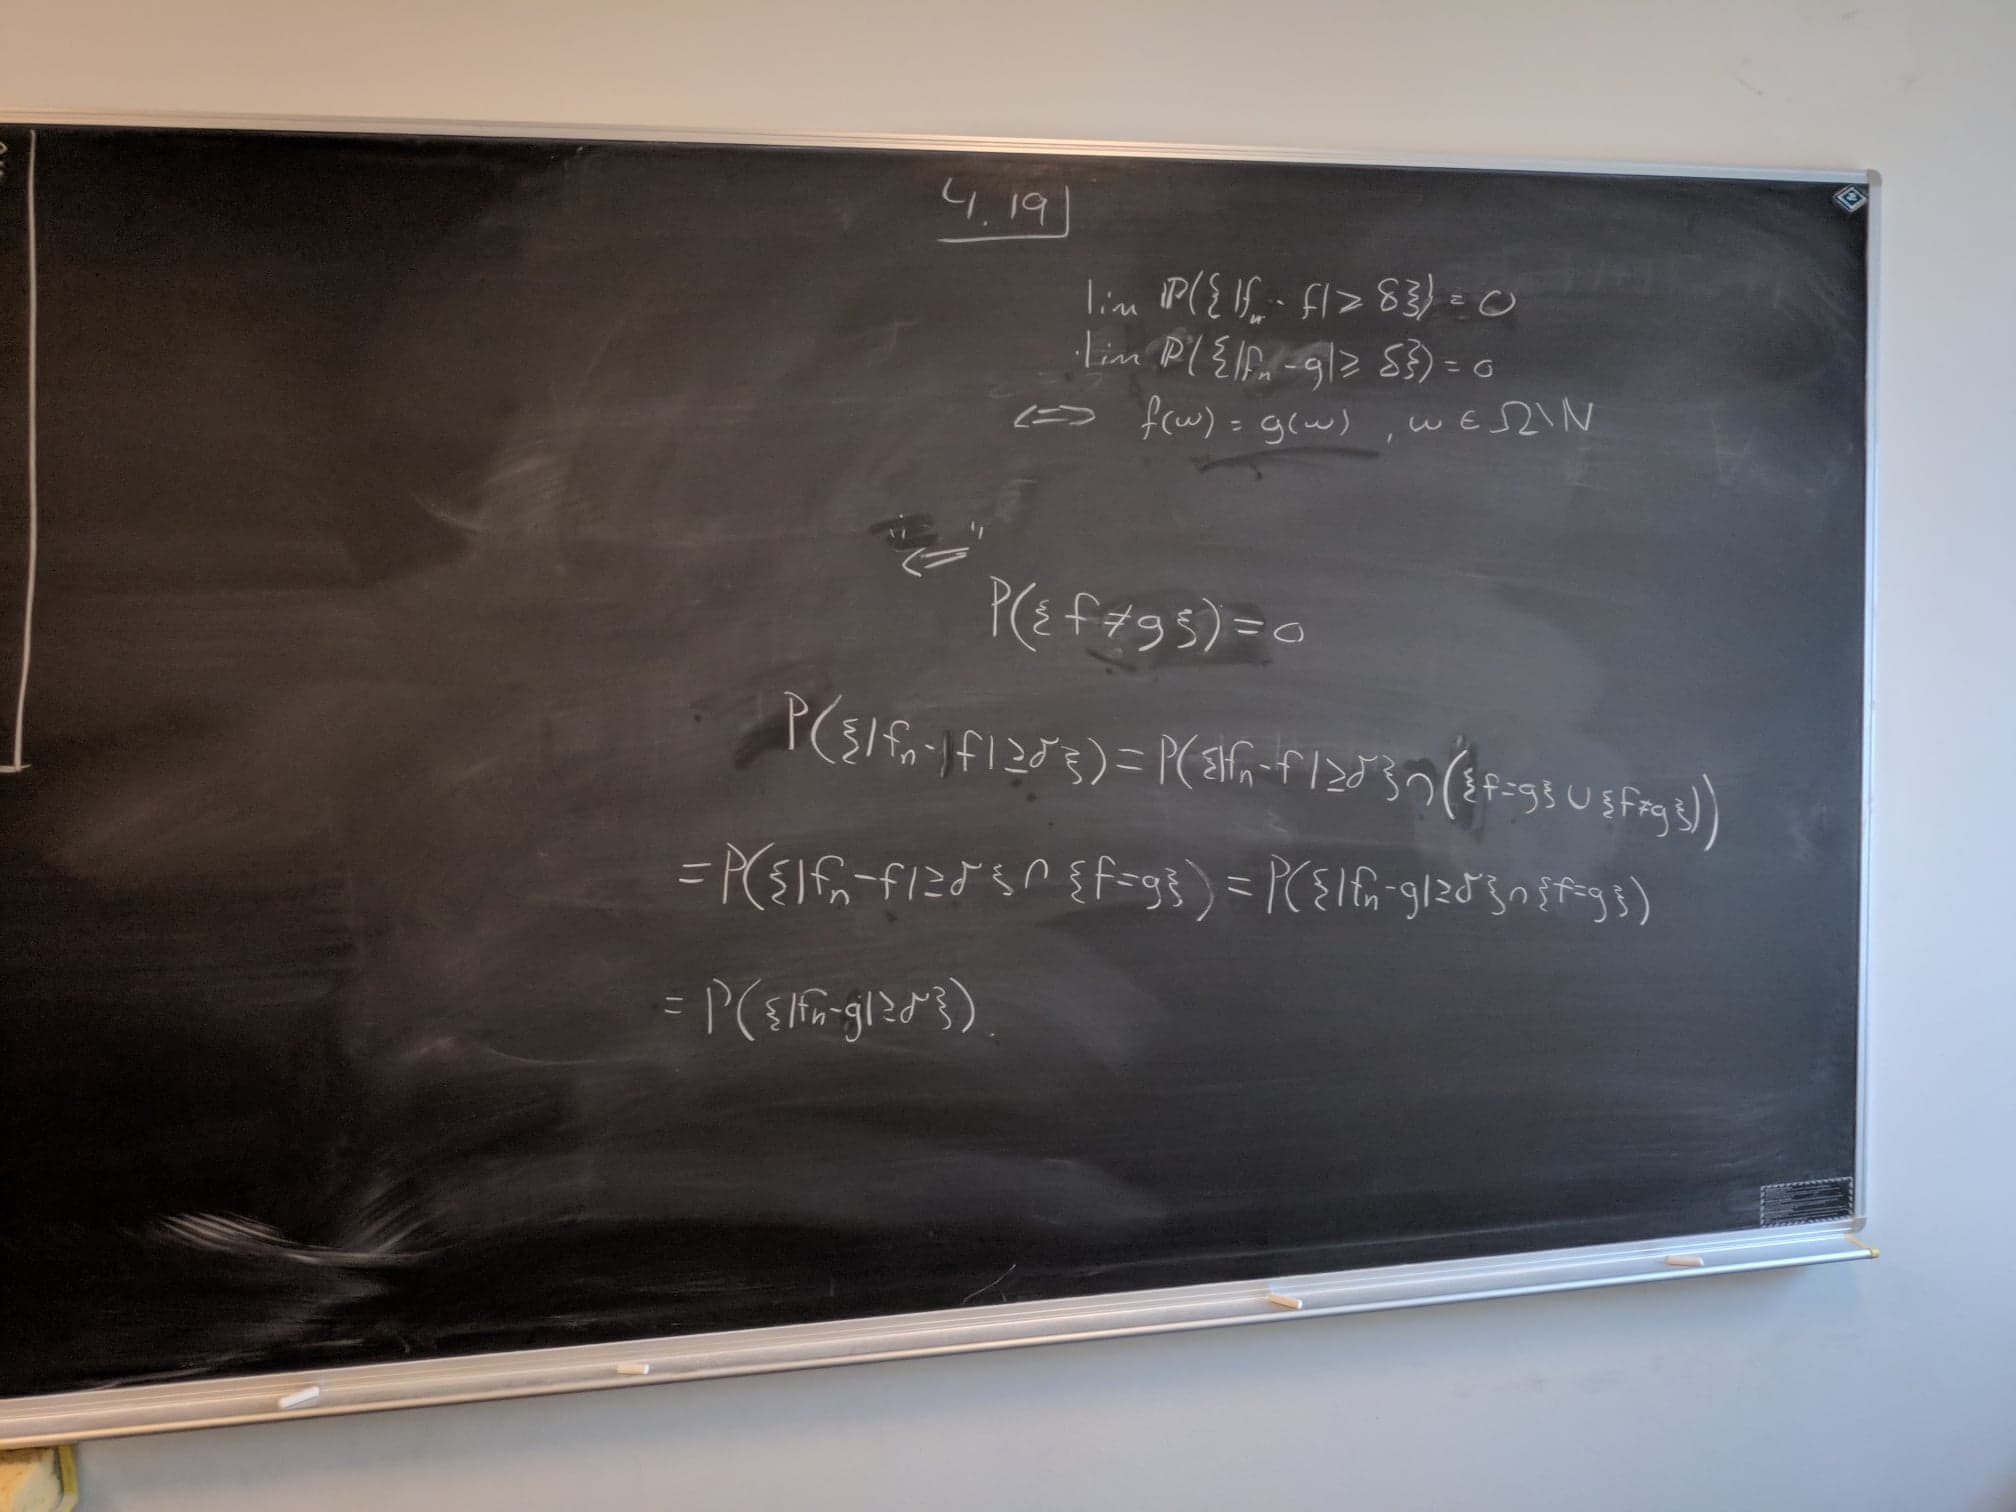 4.19
lim ℙ({|fₙ - f| ≥ δ}) = 0
lim ℙ({|fₙ - g| ≥ δ}) = 0
<=> f(ω) = g(ω) , ω ∈ Ω\N
"<="
P({f≠g})=0
P({|fₙ-f|≥δ}) = P({|fₙ-f|≥δ}∩({f=g}∪{f≠g}))
= P({|fₙ-f|≥δ}∩{f=g}) = P({|fₙ-g|≥δ}∩{f=g})
= P({|fₙ-g|≥δ}).